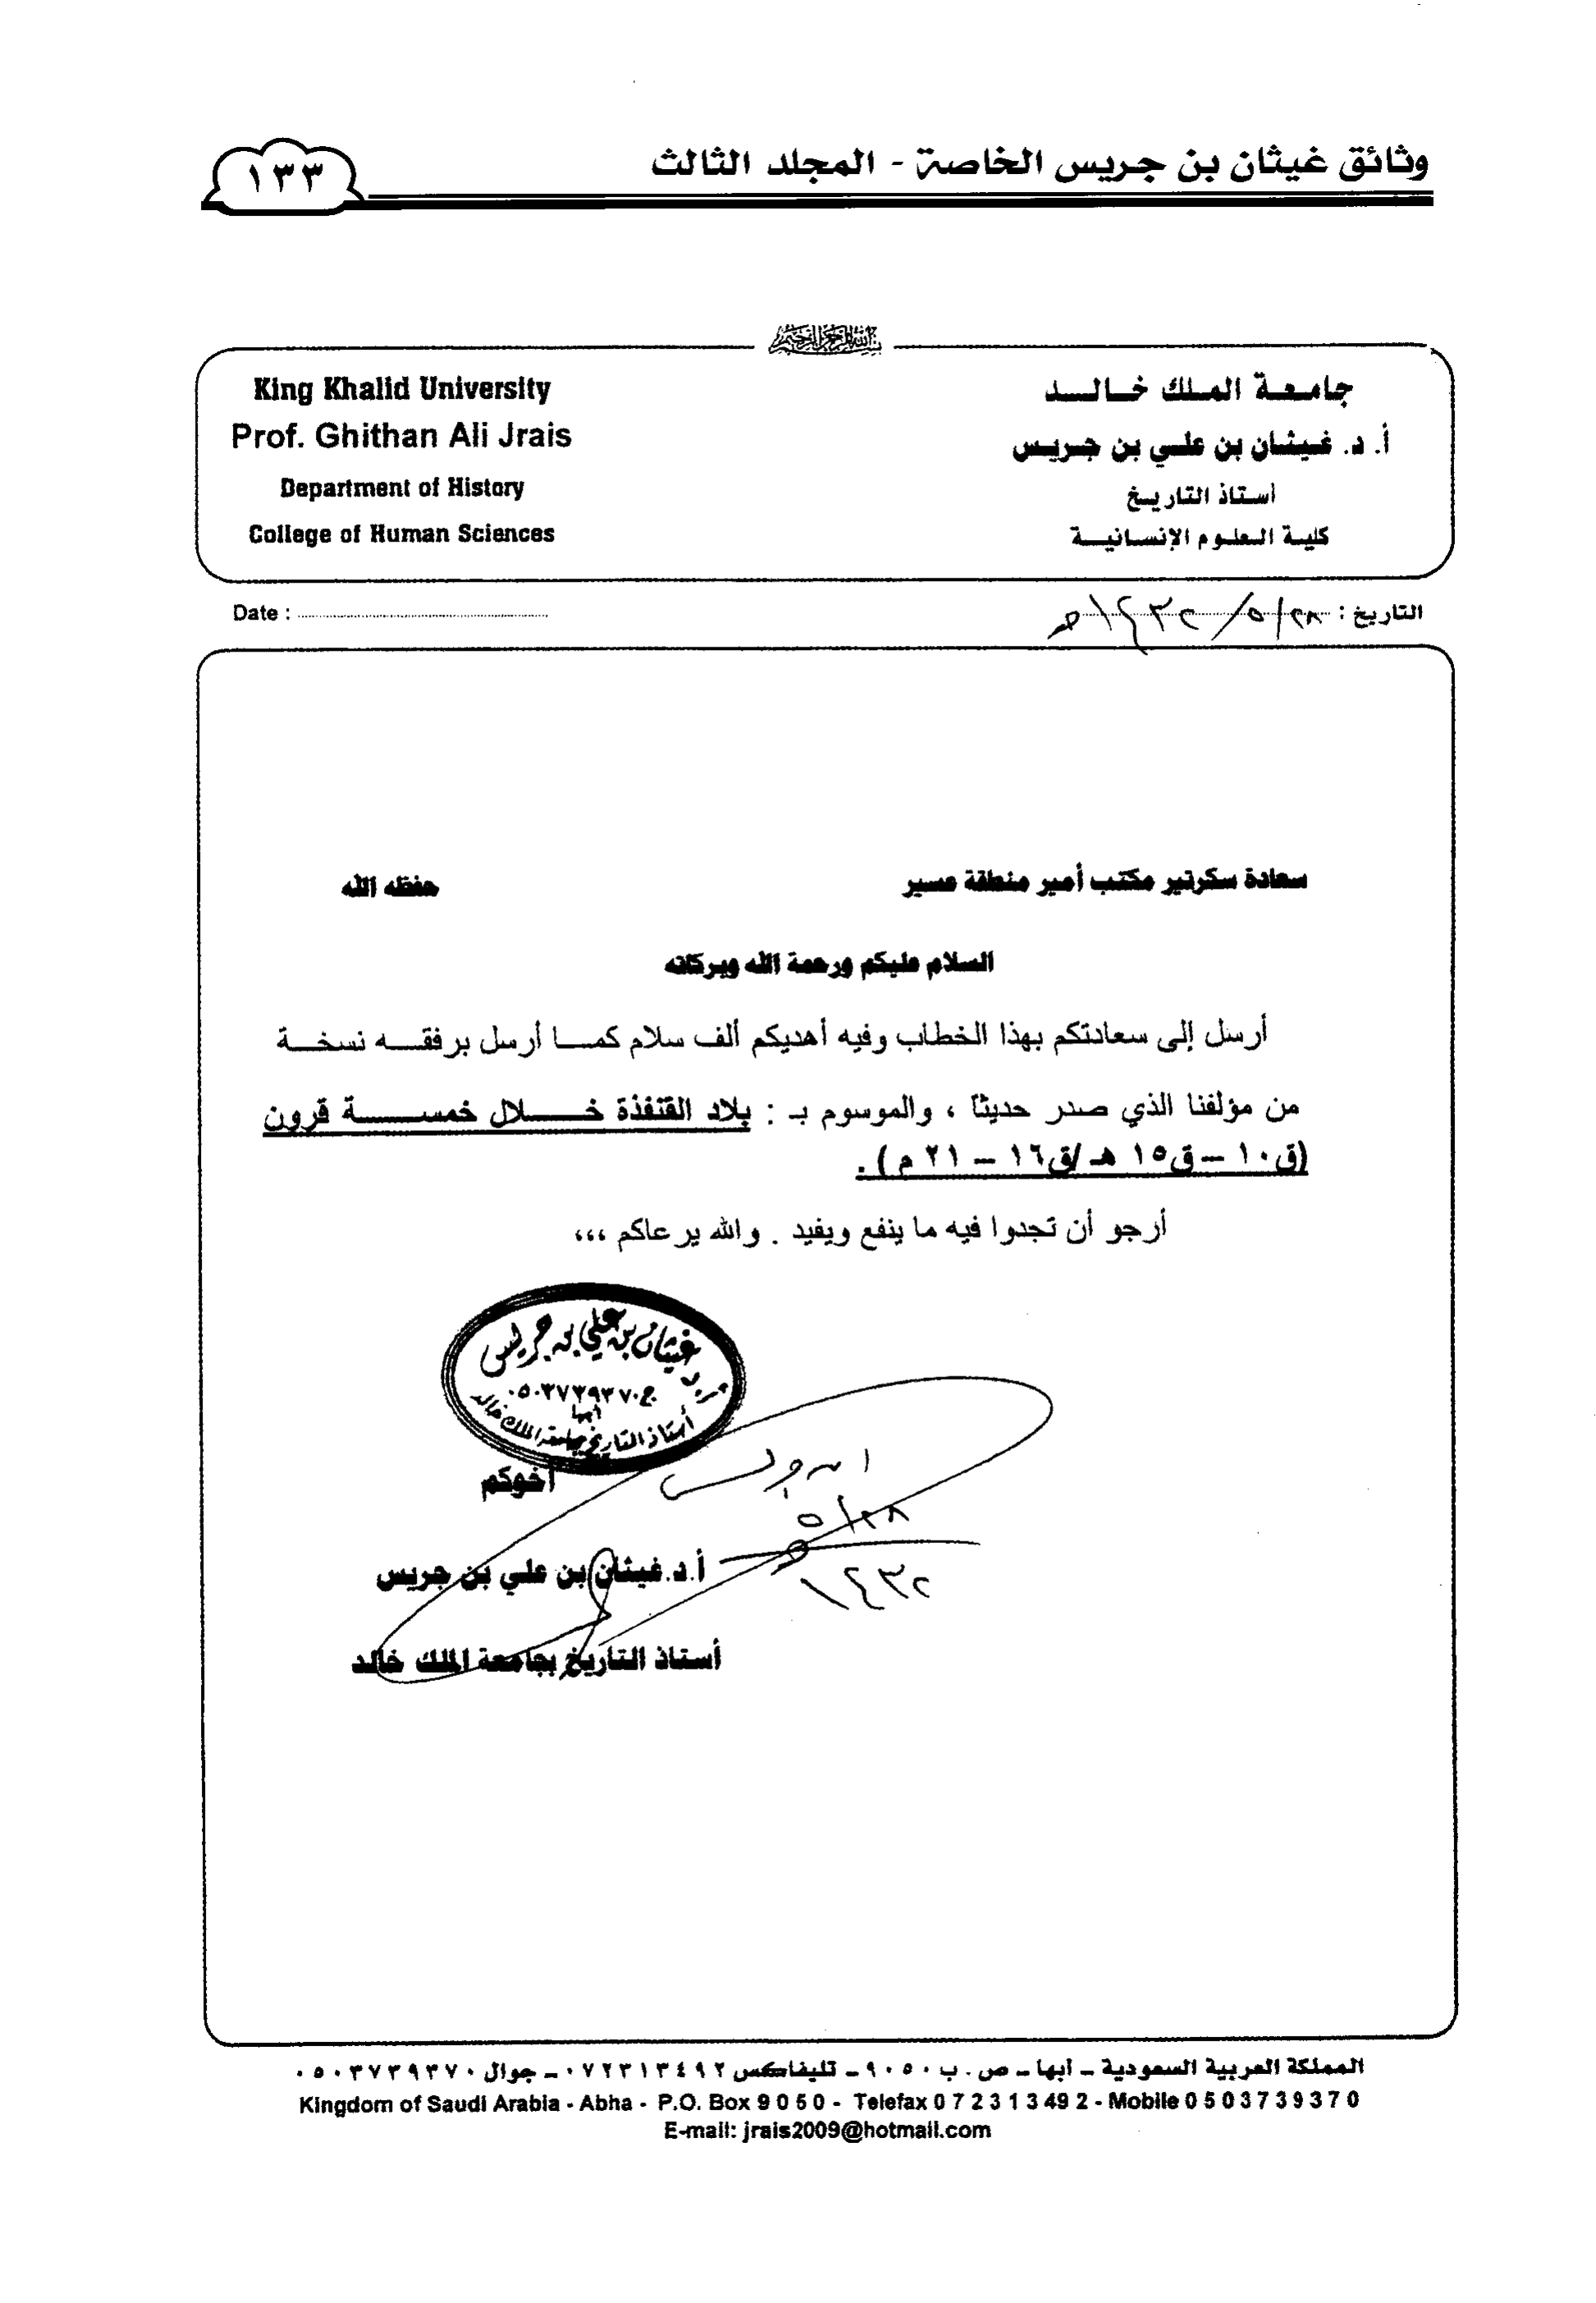 وثائق غيثان بن جريس الخاصة - المجلد الثالث
١٣٣
بسم الله الرحمن الرحيم
جامعة الملك خالد
أ. د. غيثان بن علي بن جريس
أستاذ التاريخ
كلية العلوم الإنسانية
King Khalid University
Prof. Ghithan Ali Jrais
Department of History
College of Human Sciences
التاريخ : ٢٨/٥/١٤٣٢هـ
Date :
سعادة سكرتير مكتب أمير منطقة عسير حفظه الله
السلام عليكم ورحمة الله وبركاته
أرسل إلى سعادتكم بهذا الخطاب وفيه أهديكم ألف سلام كما أرسل برفقه نسخة
من مؤلفنا الذي صدر حديثاً ، والموسوم بـ : بلاد القنفذة خلال خمسة قرون
(ق١٠ – ق١٥ هـ/ق١٦ – ٢١ م) .
أرجو أن تجدوا فيه ما ينفع ويفيد . والله يرعاكم ،،،
أ.د غيثان بن علي بن جريس
ج.٠٥٠٣٧٣٩٣٧٠
أبها
أستاذ التاريخ بجامعة الملك خالد
أخوكم
ابن جريس
٢٨/٥
١٤٣٢هـ
أ.د.غيثان بن علي بن جريس
أستاذ التاريخ بجامعة الملك خالد
المملكة العربية السعودية – أبها – ص . ب ٩٠٥٠ – تليفاكس ٠٧٢٣١٣٤٩٢ – جوال ٠٥٠٣٧٣٩٣٧٠
Kingdom of Saudi Arabia - Abha - P.O. Box 9 0 5 0 - Telefax 0 7 2 3 1 3 49 2 - Mobile 0 5 0 3 7 3 9 3 7 0
E-mail: jrais2009@hotmail.com